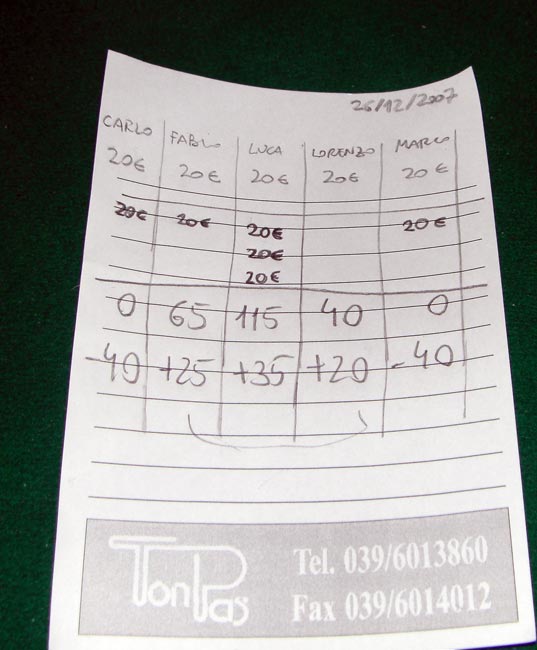 26/12/2007
CARLO FABIO LUCA LORENZO MARCO
20€ 20€ 20€ 20€ 20€
20€ 20€ 20€ 20€
20€
20€
0 65 115 40 0
-40 +25 +35 +20 -40
TonPas
Tel. 039/6013860
Fax 039/6014012